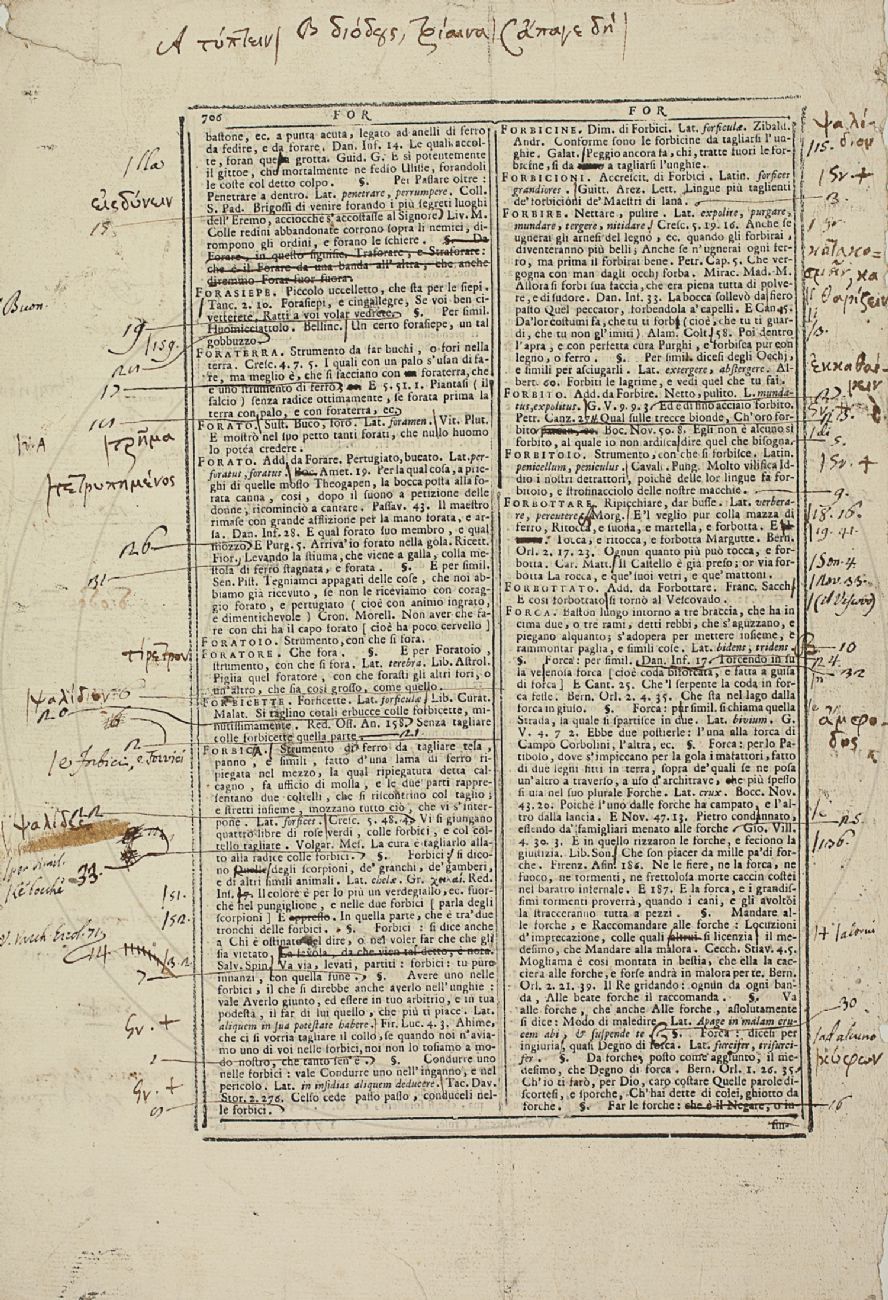 Α τύπτειν Β δίοδος, τρίαινα ἄπαγε δή
706 FOR FOR
bastone, ec. a punta acuta, legato ad anelli di ferro
da fedire, e da forare. Dan. Inf. 14. Le quali accol-
te, foran grotta. Guid. G. E sì potentemente
il gittoe, che mortalmente ne fedio Ulisse, forandoli
le coste col detto colpo. §. Per Passare oltre:
Penetrare a dentro. Lat. penetrare, perrumpere. Coll.
S. Pad. Brigossi di venire forando i più segreti luoghi
dell'Eremo, acciocchè s'accostasse al Signore. Liv. M.
Colle redini abbandonate corrono sopra li nemici, di-
rompono gli ordini, e forano le schiere. §. Da
Forare, in questo signific. Traforare, e Straforare:
che è il Forare da una banda all'altra, che anche
diremmo Forar fuor fuora.
FORASIEPE. Piccolo uccelletto, che sta per le siepi.
Tanc. 2. 10. Forasiepi, e cingallegre, Se voi ben ci-
verrete, Ratti a voi volar vedrete. §. Per simil.
Huomicciattolo. Bellinc. Un certo forasiepe, un tal
gobbuzzo.
FORATERRA. Strumento da far buchi, o fori nella
terra. Cresc. 4. 7. 5. I quali con un palo s'usan di fa-
re, ma meglio è, che si facciano con foraterra, che
è uno strumento di ferro. E 5. 51. 1. Piantasi (il
salcio) senza radice ottimamente, se forata prima la
terra con palo, e con foraterra, ec.
FORATO. Sust. Buco, foro. Lat. foramen. Vit. Plut.
E mostrò nel suo petto tanti forati, che nullo huomo
lo potea credere.
FORATO. Add. da Forare. Pertugiato, bucato. Lat. per-
foratus, foratus. Boc. Amet. 19. Per la qual cosa, a prie-
ghi di quelle mosso Theogapen, la bocca posta alla fo-
rata canna, così, dopo il suono a petizione delle
donne, ricominciò a cantare. Passav. 43. Il maestro
rimase con grande afflizione per la mano forata, e ar-
sa. Dan. Inf. 28. E qual forato suo membro, e qual
mozzo E Purg. 5. Arriva'io forato nella gola. Ricett.
Fior. Levando la stiuma, che viene a galla, colla me-
stola di ferro stagnata, e forata. §. E per simil.
Sen. Pist. Tegniamci appagati delle cose, che noi ab-
biamo già ricevuto, se non le riceviamo con corag-
gio forato, e pertugiato (cioè con animo ingrato,
e dimentichevole) Cron. Morell. Non aver che fa-
re con chi ha il capo forato [cioè ha poco cervello]
FORATOIO. Strumento, con che si fora.
FORATORE. Che fora. §. E per Foratoio,
strumento, con che si fora. Lat. terebra. Lib. Astrol.
Piglia quel foratore, con che forasti gli altri fori, o
un'altro, che sia così grosso, come quello.
FORBICETTE. Forficette. Lat. forficulæ. Lib. Curat.
Malat. Si taglino cotali erbucce colle forbicette, mi-
nutissimamente. Red. Oss. An. 158. Senza tagliare
colle forbicette quella parte.
FORBICI. Strumento di ferro da tagliare tela,
panno, e simili, fatto d'una lama di ferro ri-
piegata nel mezzo, la qual ripiegatura detta cal-
cagno, fa uficio di molla, e le due parti rappre-
sentano due coltelli, che si riscontrino col taglio,
e stretti insieme, mozzano tutto ciò, che vi s'inter-
pone. Lat. forfices. Cresc. 5. 48. 4. Vi si giungano
quattro libre di rose verdi, colle forbici, e col col-
tello tagliate. Volgar. Mes. La cura è tagliarlo alla-
to alla radice colle forbici. §. Forbici si dico-
no degli scorpioni, de' granchi, de' gamberi,
e di altri simili animali. Lat. chelæ. Gr. χηλαί. Red.
Ins. Il colore è per lo più verdegiallo, ec. fuor-
chè nel pungiglione, e nelle due forbici [parla degli
scorpioni] E appresso. In quella parte, che è tra' due
tronchi delle forbici. §. Forbici: si dice anche
a Chi è ostinato dire, o nel voler far che che gli
sia vietato, La favola, da che vien tal detto, è nota.
Salv. Spin. Va via, levati, partiti: forbici: tu pure
innanzi, con quella fune. §. Avere uno nelle
forbici, il che si direbbe anche averlo nell'unghie:
vale Averlo giunto, ed essere in tuo arbitrio, e in tua
podestà, il far di lui quello, che più ti piace. Lat.
aliquem in sua potestate habere. Fir. Luc. 4. 3. Ahime,
che ci si vorria tagliare il collo, se quando noi n'avia-
mo uno di voi nelle forbici, noi non lo tosiamo a mo-
do nostro, che tanto sen'è. §. Condurre uno
nelle forbici: vale Condurre uno nell'inganno, e nel
pericolo. Lat. in insidias aliquem deducere. Tac. Dav.
Stor. 2. 276. Celso cede passo passo, conduceli nel-
le forbici.
FORBICINE. Dim. di Forbici. Lat. forficulæ. Zibald.
Andr. Conforme sono le forbicine da tagliarsi l'un-
ghie. Galat. Peggio ancora fa, chi, tratte fuori le for-
bicine, si dà a tagliarsi l'unghie.
FORBICIONI. Accrescit. di Forbici. Latin. forfices
grandiores. Guitt. Arez. Lett. Lingue più taglienti
de' forbicioni de' Maestri di lana.
FORBIRE. Nettare, pulire. Lat. expolire, purgare,
mundare, tergere, nitidare. Cresc. 5. 19. 16. Anche se
ugnerai gli arnesi del legno, ec. quando gli forbirai,
diventeranno più belli; Anche se n'ugnerai ogni fer-
ro, ma prima il forbirai bene. Petr. Cap. 5. Che ver-
gogna con man dagli occhj forba. Mirac. Mad. M.
Allora si forbì sua faccia, che era piena tutta di polve-
re, e di sudore. Dan. Inf. 33. La bocca sollevò dal fiero
pasto Quel peccator, forbendola a'capelli. E Can. 15.
Da'lor costumi fa, che tu ti forbi (cioè, che tu ti guar-
di, che tu non gl'imiti) Alam. Colt. 58. Poi dentro
l'apra, e con perfetta cura Purghi, e forbisca pur con
legno, o ferro. §. Per simil. dicesi degli Occhj,
e simili per asciugarli. Lat. extergere, abstergere. Al-
bert. 60. Forbiti le lagrime, e vedi quel che tu fai.
FORBITO. Add. da Forbire. Netto, pulito. L. munda-
tus, expolitus. G. V. 9. 9. 3. Ed e di fino acciaio forbito.
Petr. Canz. 27. 4. Qual sulle trecce bionde, Ch'oro for-
bito Boc. Nov. 50. 8. Egli non è alcuno sì
forbito, al quale io non ardisca dire quel che bisogna.
FORBITOIO. Strumento, con che si forbisce. Latin.
penicillum, peniculus. Cavalc. Pung. Molto vilifica Id-
dio i nostri detrattori, poichè delle lor lingue fa for-
bitoio, e strofinacciolo delle nostre macchie.
FORBOTTARE. Ripicchiare, dar busse. Lat. verbera-
re, percutere. Morg. E'l veglio pur colla mazza di
ferro, Ritocca, e suona, e martella, e forbotta. E
Tocca, e ritocca, e forbotta Margutte. Bern.
Orl. 2. 17. 23. Ognun quanto più può tocca, e for-
botta. Car. Matt. Il Castello è già preso; or via for-
botta La rocca, e que'suoi vetri, e que' mattoni.
FORBOTTATO. Add. da Forbottare. Franc. Sacch.
E così forbottato si tornò al Vescovado.
FORCA. Baston lungo intorno a tre braccia, che ha in
cima due, o tre rami, detti rebbi, che s'aguzzano, e
piegano alquanto; s'adopera per mettere insieme, e
rammontar paglia, e simili cose. Lat. bidens, tridens.
§. Forca: per simil. Dan. Inf. 17. Torcendo in su
la velenosa forca [cioè coda biforcata, e fatta a guisa
di forca] E Cant. 25. Che'l serpente la coda in for-
ca fesse. Bern. Orl. 2. 4. 35. Che sta nel lago dalla
forca in giuso. §. Forca: per simil. si chiama quella
Strada, la quale si spartisce in due. Lat. bivium. G.
V. 4. 7. 2. Ebbe due postierle: l'una alla forca di
Campo Corbolini, l'altra, ec. §. Forca: per lo Pa-
tibolo, dove s'impiccano per la gola i malfattori, fatto
di due legni fitti in terra, sopra de' quali se ne posa
un'altro a traverso, a uso d'architrave, che più spesso
si usa nel suo plurale Forche. Lat. crux. Bocc. Nov.
43. 20. Poichè l'uno dalle forche ha campato, e l'al-
tro dalla lancia. E Nov. 47. 13. Pietro condannato,
essendo da' famigliari menato alle forche. Gio. Vill.
4. 30. 3. E in quello rizzaron le forche, e feciono la
giustizia. Lib. Son. Che son piacer da mille pa'di for-
che. Firenz. Asin. 186. Ne le fiere, ne la forca, ne
fuoco, ne tormenti, ne frettolosa morte caccin costei
nel baratro infernale. E 187. E la forca, e i grandis-
simi tormenti proverrà, quando i cani, e gli avoltoi
la stracceranno tutta a pezzi. §. Mandare al-
le forche, e Raccomandare alle forche: Locuzioni
d'imprecazione, colle quali altrui si licenzia il me-
desimo, che Mandare alla malora. Cecch. Stiav. 4. 5.
Mogliama è così montata in bestia, che ella la cac-
ciera alle forche, e forse andrà in malora per te. Bern.
Orl. 2. 21. 39. Il Re gridando: ognun da ogni ban-
da, Alle beate forche il raccomanda. §. Va
alle forche, che anche Alle forche, assolutamente
si dice: Modo di maledire. Lat. Apage in malam cru-
cem abi, & suspende te. §. Forca: dicesi per
ingiuria, quasi Degno di forca. Lat. furcifer, trifurci-
fer. §. Da forche, posto come aggiunto, il me-
desimo, che Degno di forca. Bern. Orl. 1. 26. 35.
Ch'io ti farò, per Dio, caro costare Quelle parole di-
scortesi, e sporche, Ch'hai dette di colei, ghiotto da
forche. §. Far le forche: che è il Negare, o in-
fin-
εἰσδύνειν
15.
Buon.
19
159.
17
τρῆμα
τετρυπημένος
26
31
τέρετρον
ψαλίδιον
20
21
le Forbici, e Forvici
ψαλίδες
per simil.
33
151.
152.
14
Gr. +
Gr. +
ψαλί-
διον
115.
Gr +
3.
ἐκκαθαί-
ρειν
Gr. +
9.
18. 16.
19. 41.
10
24.
32
136.
30
16